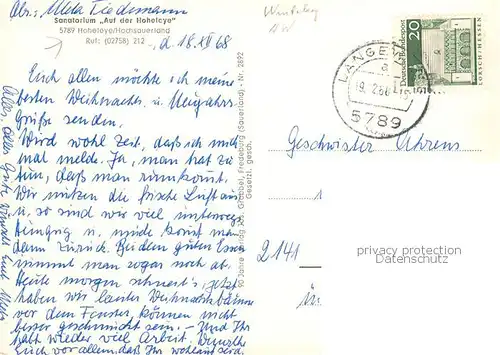 Abs.: Meta Tiedemann
Sanatorium „Auf der Hoheleye"
5789 Hoheleye/Hochsauerland
Ruf: (02758) 212
, d. 18.XII 68
Euch allen möchte ich meine
besten Weihnachts- u. Neujahrs-
Grüße senden.
Wird wohl Zeit, daß ich mich
mal melde. Ja, man hat zu
tun, daß man rumkommt.
Wir nutzen die frische Luft aus
u. so sind wir viel unterwegs.
Hungrig u. müde kommt man
dann zurück. Bei dem guten Essen
nimmt man sogar noch ab.
Heute morgen schneit's, jetzt
haben wir lauter Weihnachtsbäume
vor dem Fenster, können nicht
besser geschmückt sein. – Und Ihr
habt wieder viel Arbeit. Wünsche
Euch vor allem, daß Ihr wohlauf seid.
Alles, alles Gute wünscht Euch Meta
90 Jahre Verlag Jos. Grobbel, Fredeburg (Sauerland) - Nr. 2892
Gesetzl. gesch.
LANGE
19.12.68
5789
Deutsche Bundespost
20
LORSCH/HESSEN
Geschwister Ahrens
1
2141
privacy protection
AK-Ansichtskarten.de
in